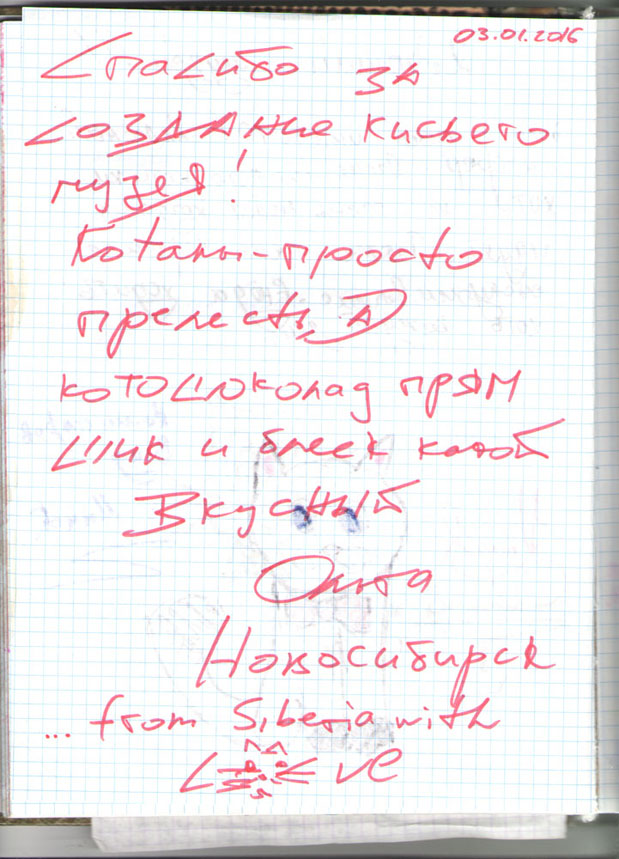 03.01.2016
Спасибо за
создание кисьего
музея!
Котаны-просто
прелесть, А
котошоколад прям
шик и блеск какой
Вкусный
Ольга
Новосибирск
... from Siberia with
Love